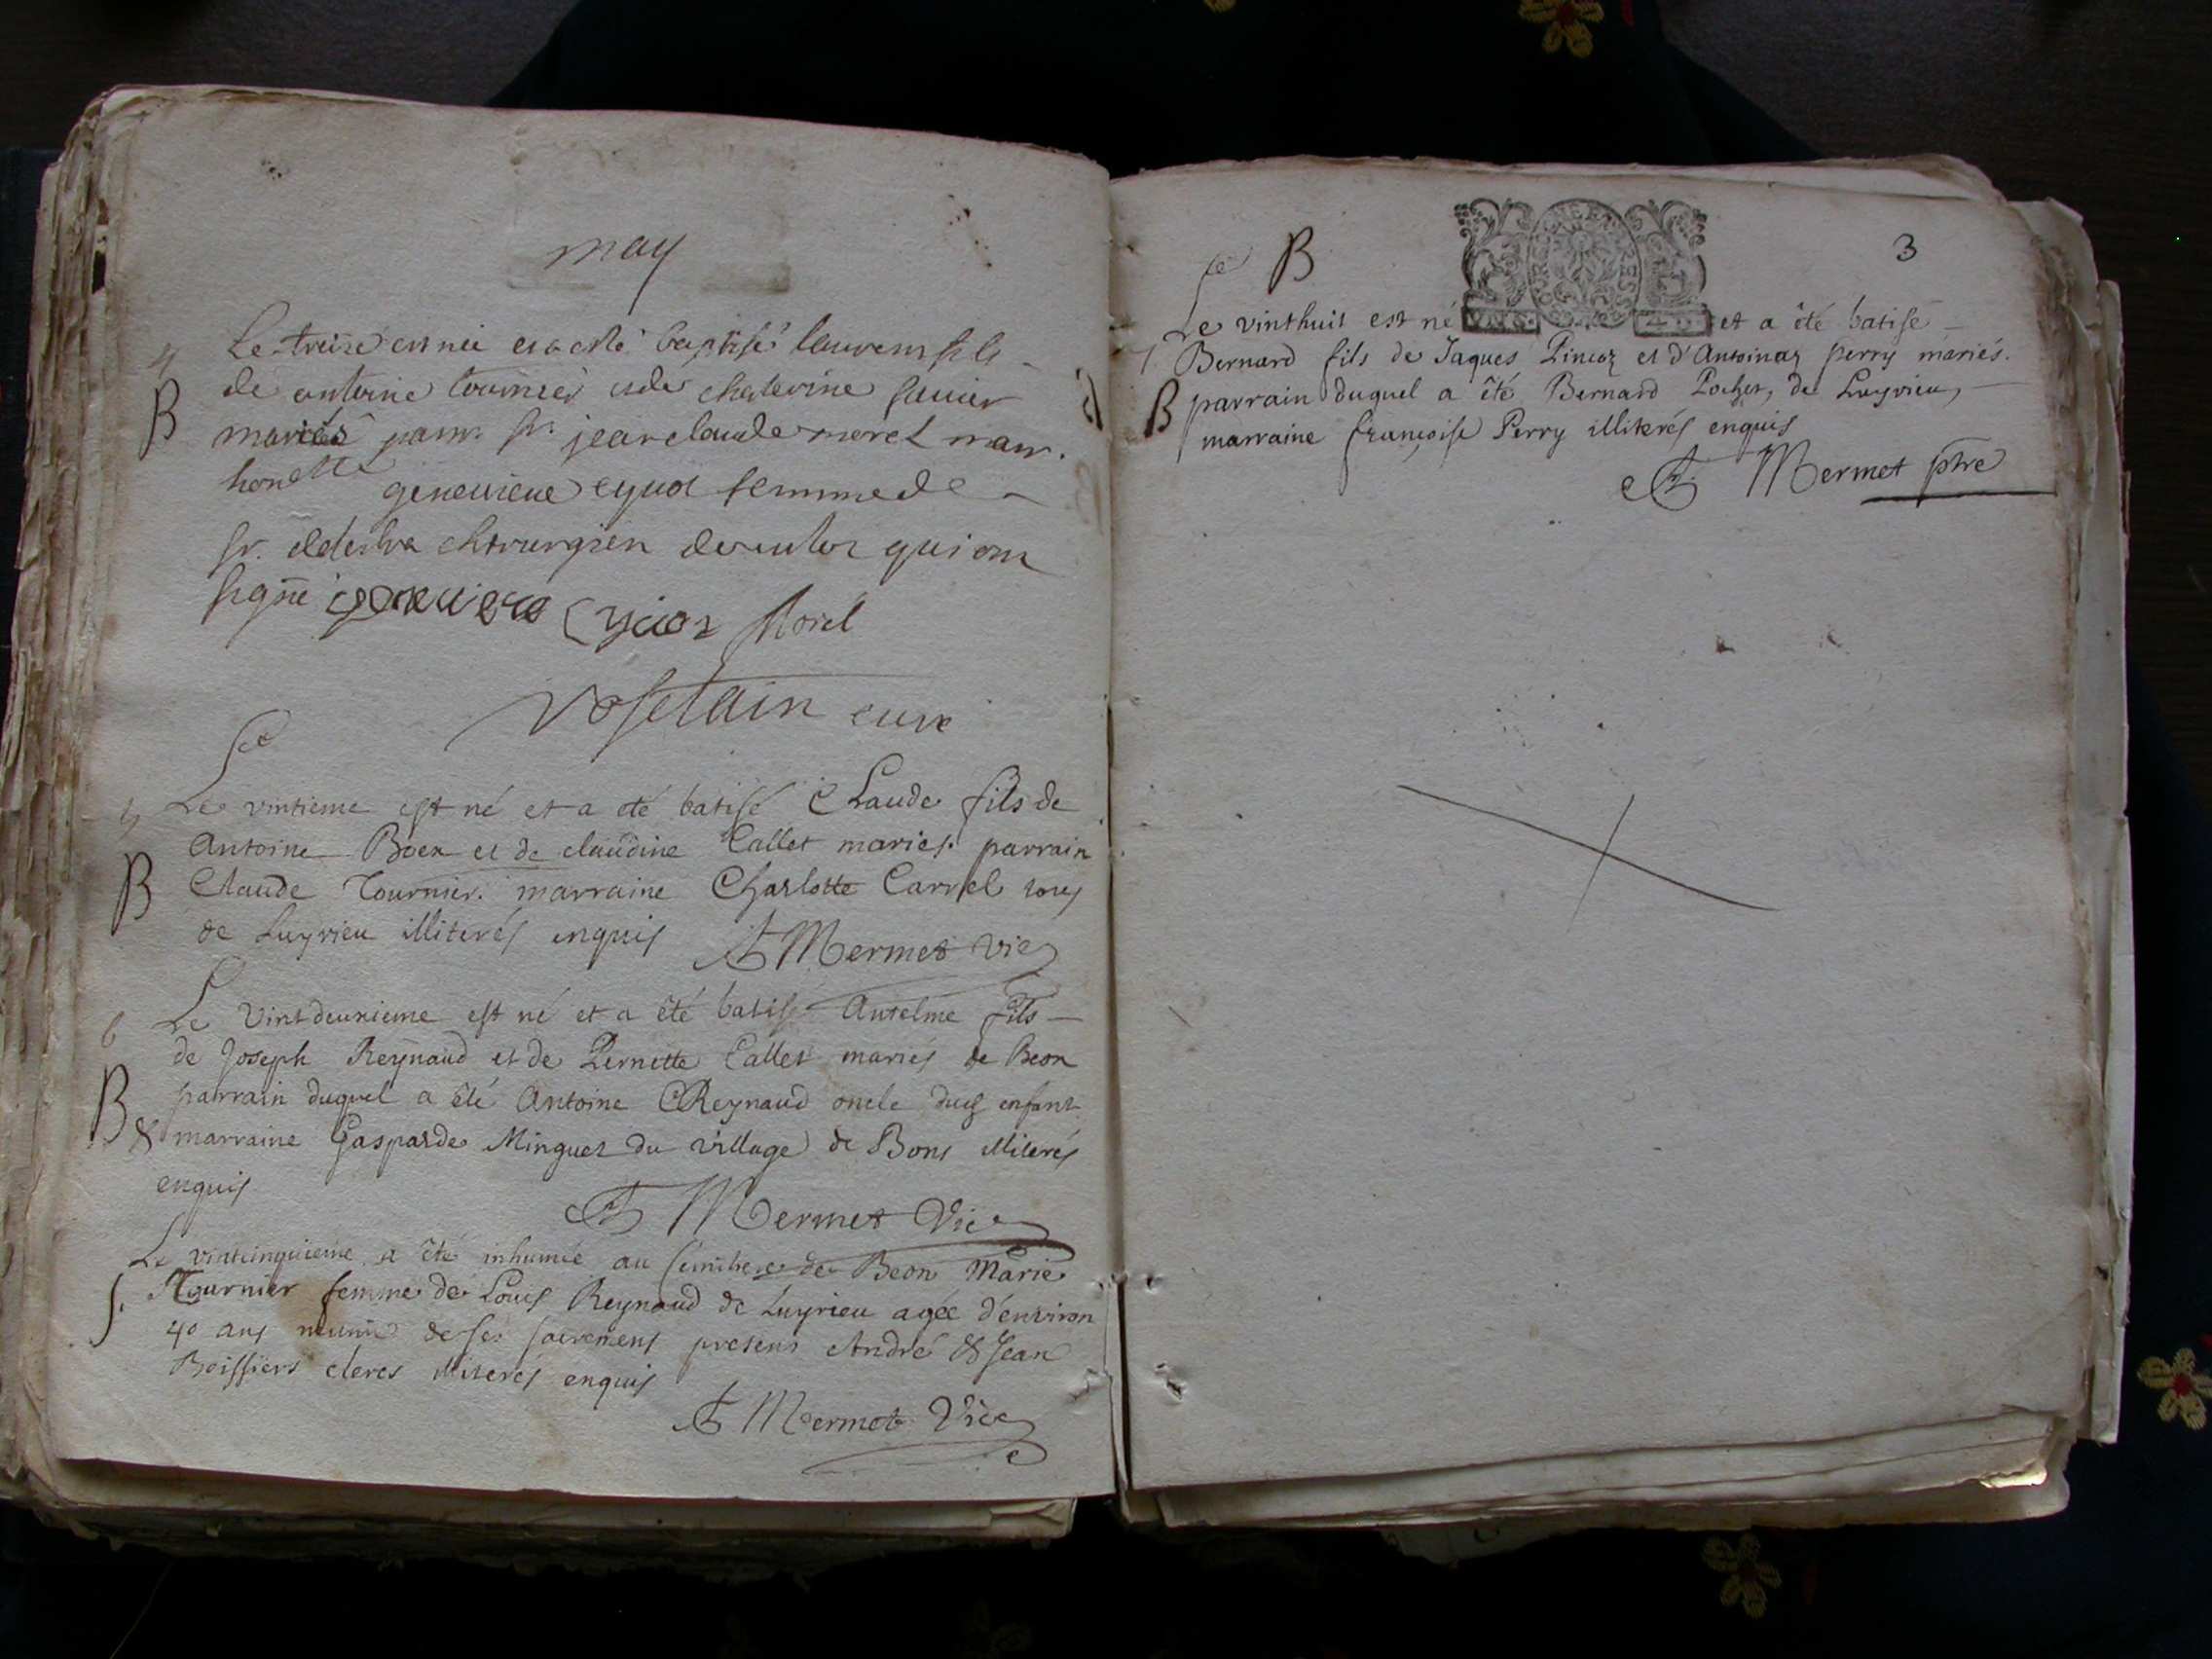 may
4 Le treize est né et a esté baptisé laurens fils
de antoine tournier et de chaterine
B mariés parr. sr. jean claude morel marr.
honette genevieve eynot femme de
sr. chirurgien de culoz qui ont
signé genevieve Morel
curé
5 Le vintieme est né et a eté batisé Claude fils de
Antoine Boex et de claudine Callet mariés. parrain
B Claude Tournier. marraine Charlotte Carrel tous
de Luyrieu illiterés enquis Mermet vic
6 Le vintdeuxieme est né et a êté batisé Anselme fils
de Joseph Reynaud et de Pernette Callet mariés de Beon
B parrain duquel a êté Antoine Reynaud oncle dud enfant
& marraine Gasparde Minguet du village de Bons illiterés
enquis
Mermet Vic
Le vintcinquieme a êté inhumée au cimitiere de Beon Marie
S. Tournier femme de Louis Reynaud de Luyrieu agée d'environ
40 ans munie de ses sacremens presens André & Jean
Boissiers clercs illiterés enquis
Mermet Vic
B
3
Le vinthuit est né et a êté batisé
7 Bernard fils de Jaques Pincoz et d'Antoinaz Perry mariés.
B parrain duquel a êté Bernard Pochet, de Luyrieu,
marraine françoise Perry illiterés enquis
Mermet ptre